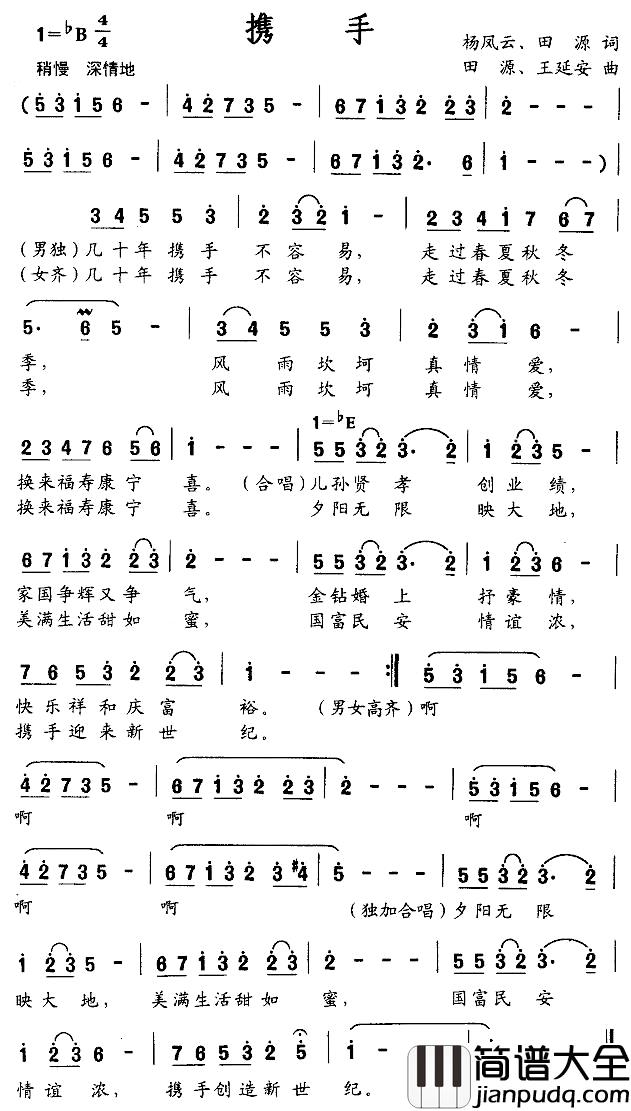 1=♭B 4/4 携 手 杨凤云、田 源 词
稍慢 深情地 田 源、王延安 曲
(5̇ 3̇ 1̇ 5 6 - | 4̇ 2̇ 7 3 5 - | 6 7 1̇ 3̇ 2̇ 2̇ 3̇ | 2̇ - - - |
5̇ 3̇ 1̇ 5 6 - | 4̇ 2̇ 7 3 5 - | 6 7 1̇ 3̇ 2̇· 6 | 1̇ - - - )
3 4 5 5 3̇ | 2̇ 3̇ 2̇ 1̇ - | 2̇ 3̇ 4̇ 1̇ 7 6 7
(男独)几十年携手 不容易, 走过春夏秋冬
(女齐)几十年携手 不容易, 走过春夏秋冬
5· 6 5 - | 3 4 5 5 3̇ | 2̇ 3̇ 1̇ 6 - |
季, 风雨坎坷 真情爱,
季, 风雨坎坷 真情爱,
1=♭E
2 3 4 7 6 5 6 | 1̇ - - - | 5 5 3̇ 2̇ 3̇· 2̇ | 1̇ 2̇ 3̇ 5 - |
换来福寿康宁 喜。 (合唱)儿孙贤孝 创业绩,
换来福寿康宁 喜。 夕阳无限 映大地,
6 7 1̇ 3̇ 2̇ 2̇ 3̇ | 2̇ - - - | 5 5 3̇ 2̇ 3̇· 2̇ | 1̇ 2̇ 3̇ 6 - |
家国争辉又争 气, 金钻婚上 抒豪情,
美满生活甜如 蜜, 国富民安 情谊浓,
7 6 5 3̇ 2̇ 2̇ 3̇ | 1̇ - - - :‖ 5̇ 3̇ 1̇ 5 6 - |
快乐祥和庆富 裕。 (男女高齐)啊
携手迎来新世 纪。
4̇ 2̇ 7 3 5 - | 6 7 1̇ 3̇ 2̇ 2̇ 3̇ | 2̇ - - - | 5̇ 3̇ 1̇ 5 6 - |
啊 啊 啊
4̇ 2̇ 7 3 5 - | 6 7 1̇ 3̇ 2̇ 3̇ #4̇ | 5̇ - - - | 5 5 3̇ 2̇ 3̇· 2̇ |
啊 啊 (独加合唱)夕阳无限
1̇ 2̇ 3̇ 5 - | 6 7 1̇ 3̇ 2̇ 2̇ 3̇ | 2̇ - - - | 5 5 3̇ 2̇ 3̇· 2̇ |
映大地, 美满生活甜如 蜜, 国富民安
1̇ 2̇ 3̇ 6 - | 7 6 5 3̇ 2̇ 5̇ 3̇ | 1̇ - -
情谊浓, 携手创造新世 纪。
简谱大全
jianpudq.com